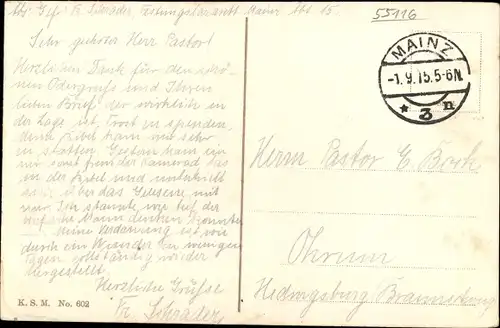 Abs. Gefr. Fr. Schrader, Festungslazarett Mainz Abt. 15.
55116
Sehr geehrter Herr Pastor!
Herzlichen Dank für den schö-
nen Odergruß und Ihren
lieben Brief der wirklich in
der Lage ist, Trost zu spenden,
denn Bibel kam mir sehr
zu statten. Gestern kam ein
mir sonst fremder Kamerad las
in der Bibel und unterhielt
sich über das Gelesene mit
mir. Ich staunte wie tief der
Mann denken konnte
Meine Verdauung ist
durch ein Wunder in wenigen
Tagen vollständig wieder
hergestellt.
Herzliche Grüße
Fr. Schrader
K. S. M. No. 602
MAINZ
-1.9.15.5-6N.
* 3 n
Herrn Pastor E. Bock
Ohrum
Hedwigsburg Braunschweig